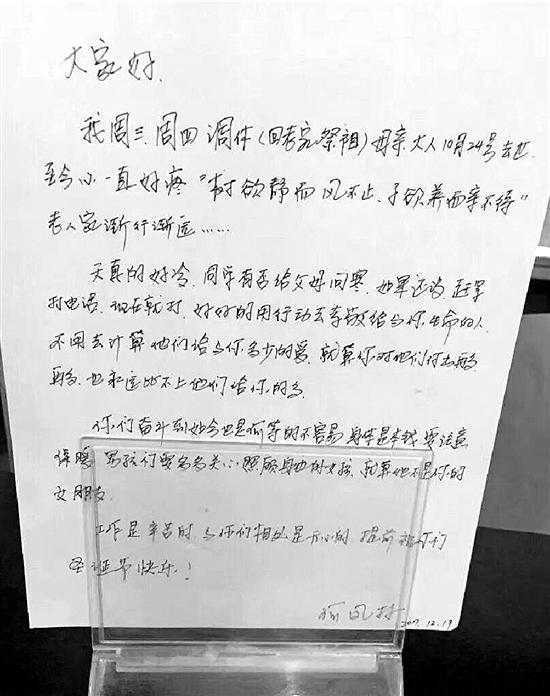 大家好.
我周三.周四调休(回老家祭祖)母亲大人10月24号去世.
至今心一直好疼"树欲静而风不止.子欲养而亲不待"
老人家渐行渐远……
天真的好冷.同学有否给父母问寒.如果还没.赶早
打电话.现在就打.好好的用行动去孝敬给与你生命的人.
不用去计算他们给与你多少的爱.就算你对他们付出再多
再多.也永远比不上他们给你的多.
你们奋斗到如今也是何等的不容易.身体是本钱.要注意
保暖.男孩们要多多关心.照顾身边的女孩.就算她不是你的
女朋友.
工作是辛苦的.与你们相处是开心的.提前祝你们
圣诞节快乐!
2017.12.19